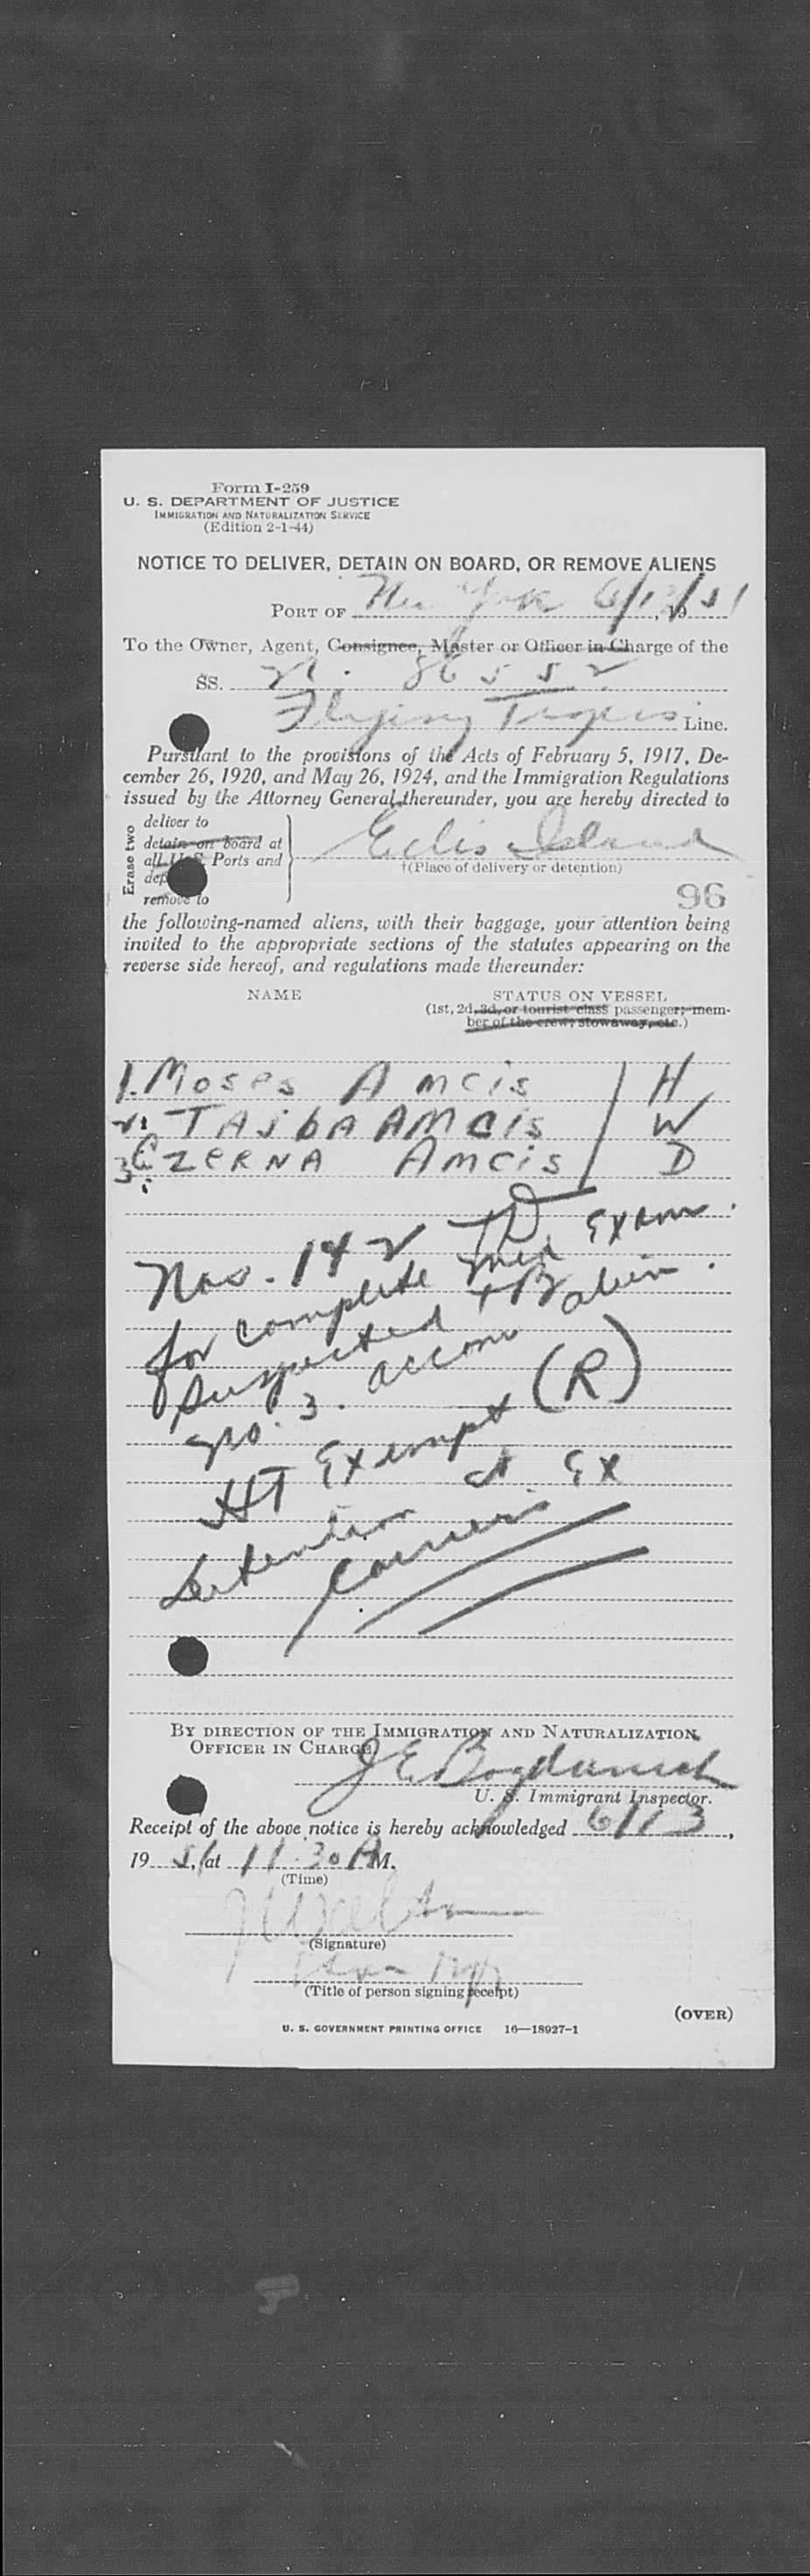 Form I-259
U. S. DEPARTMENT OF JUSTICE
IMMIGRATION AND NATURALIZATION SERVICE
(Edition 2-1-44)
NOTICE TO DELIVER, DETAIN ON BOARD, OR REMOVE ALIENS
PORT OF New York 6/13/51, 19
To the Owner, Agent, Consignee, Master or Officer in Charge of the
SS. N. 86552
Flying Tigers Line.
Pursuant to the provisions of the Acts of February 5, 1917, De-
cember 26, 1920, and May 26, 1924, and the Immigration Regulations
issued by the Attorney General thereunder, you are hereby directed to
Erase two
deliver to
detain on board at
all U. S. Ports and
dep
remove to
Ellis Island
†(Place of delivery or detention)
96
the following-named aliens, with their baggage, your attention being
invited to the appropriate sections of the statutes appearing on the
reverse side hereof, and regulations made thereunder:
NAME STATUS ON VESSEL
(1st, 2d, 3d, or tourist class passenger; mem-
ber of the crew; stowaway, etc.)
1. Moses Amcis / H
2. TAJbA AMCIS / W
3. CZERNA Amcis / D
Nos. 1 & 2 TD
for complete med Exam.
Suspected TB
No. 3. accom alien.
HT Exempt (R)
detention at Ex
Carriers
BY DIRECTION OF THE IMMIGRATION AND NATURALIZATION
OFFICER IN CHARGE
J E
U. S. Immigrant Inspector.
Receipt of the above notice is hereby acknowledged 6/13,
19 51, at 11:30 A M.
(Time)
(Signature)
(Title of person signing receipt)
(OVER)
U. S. GOVERNMENT PRINTING OFFICE 16—18927-1